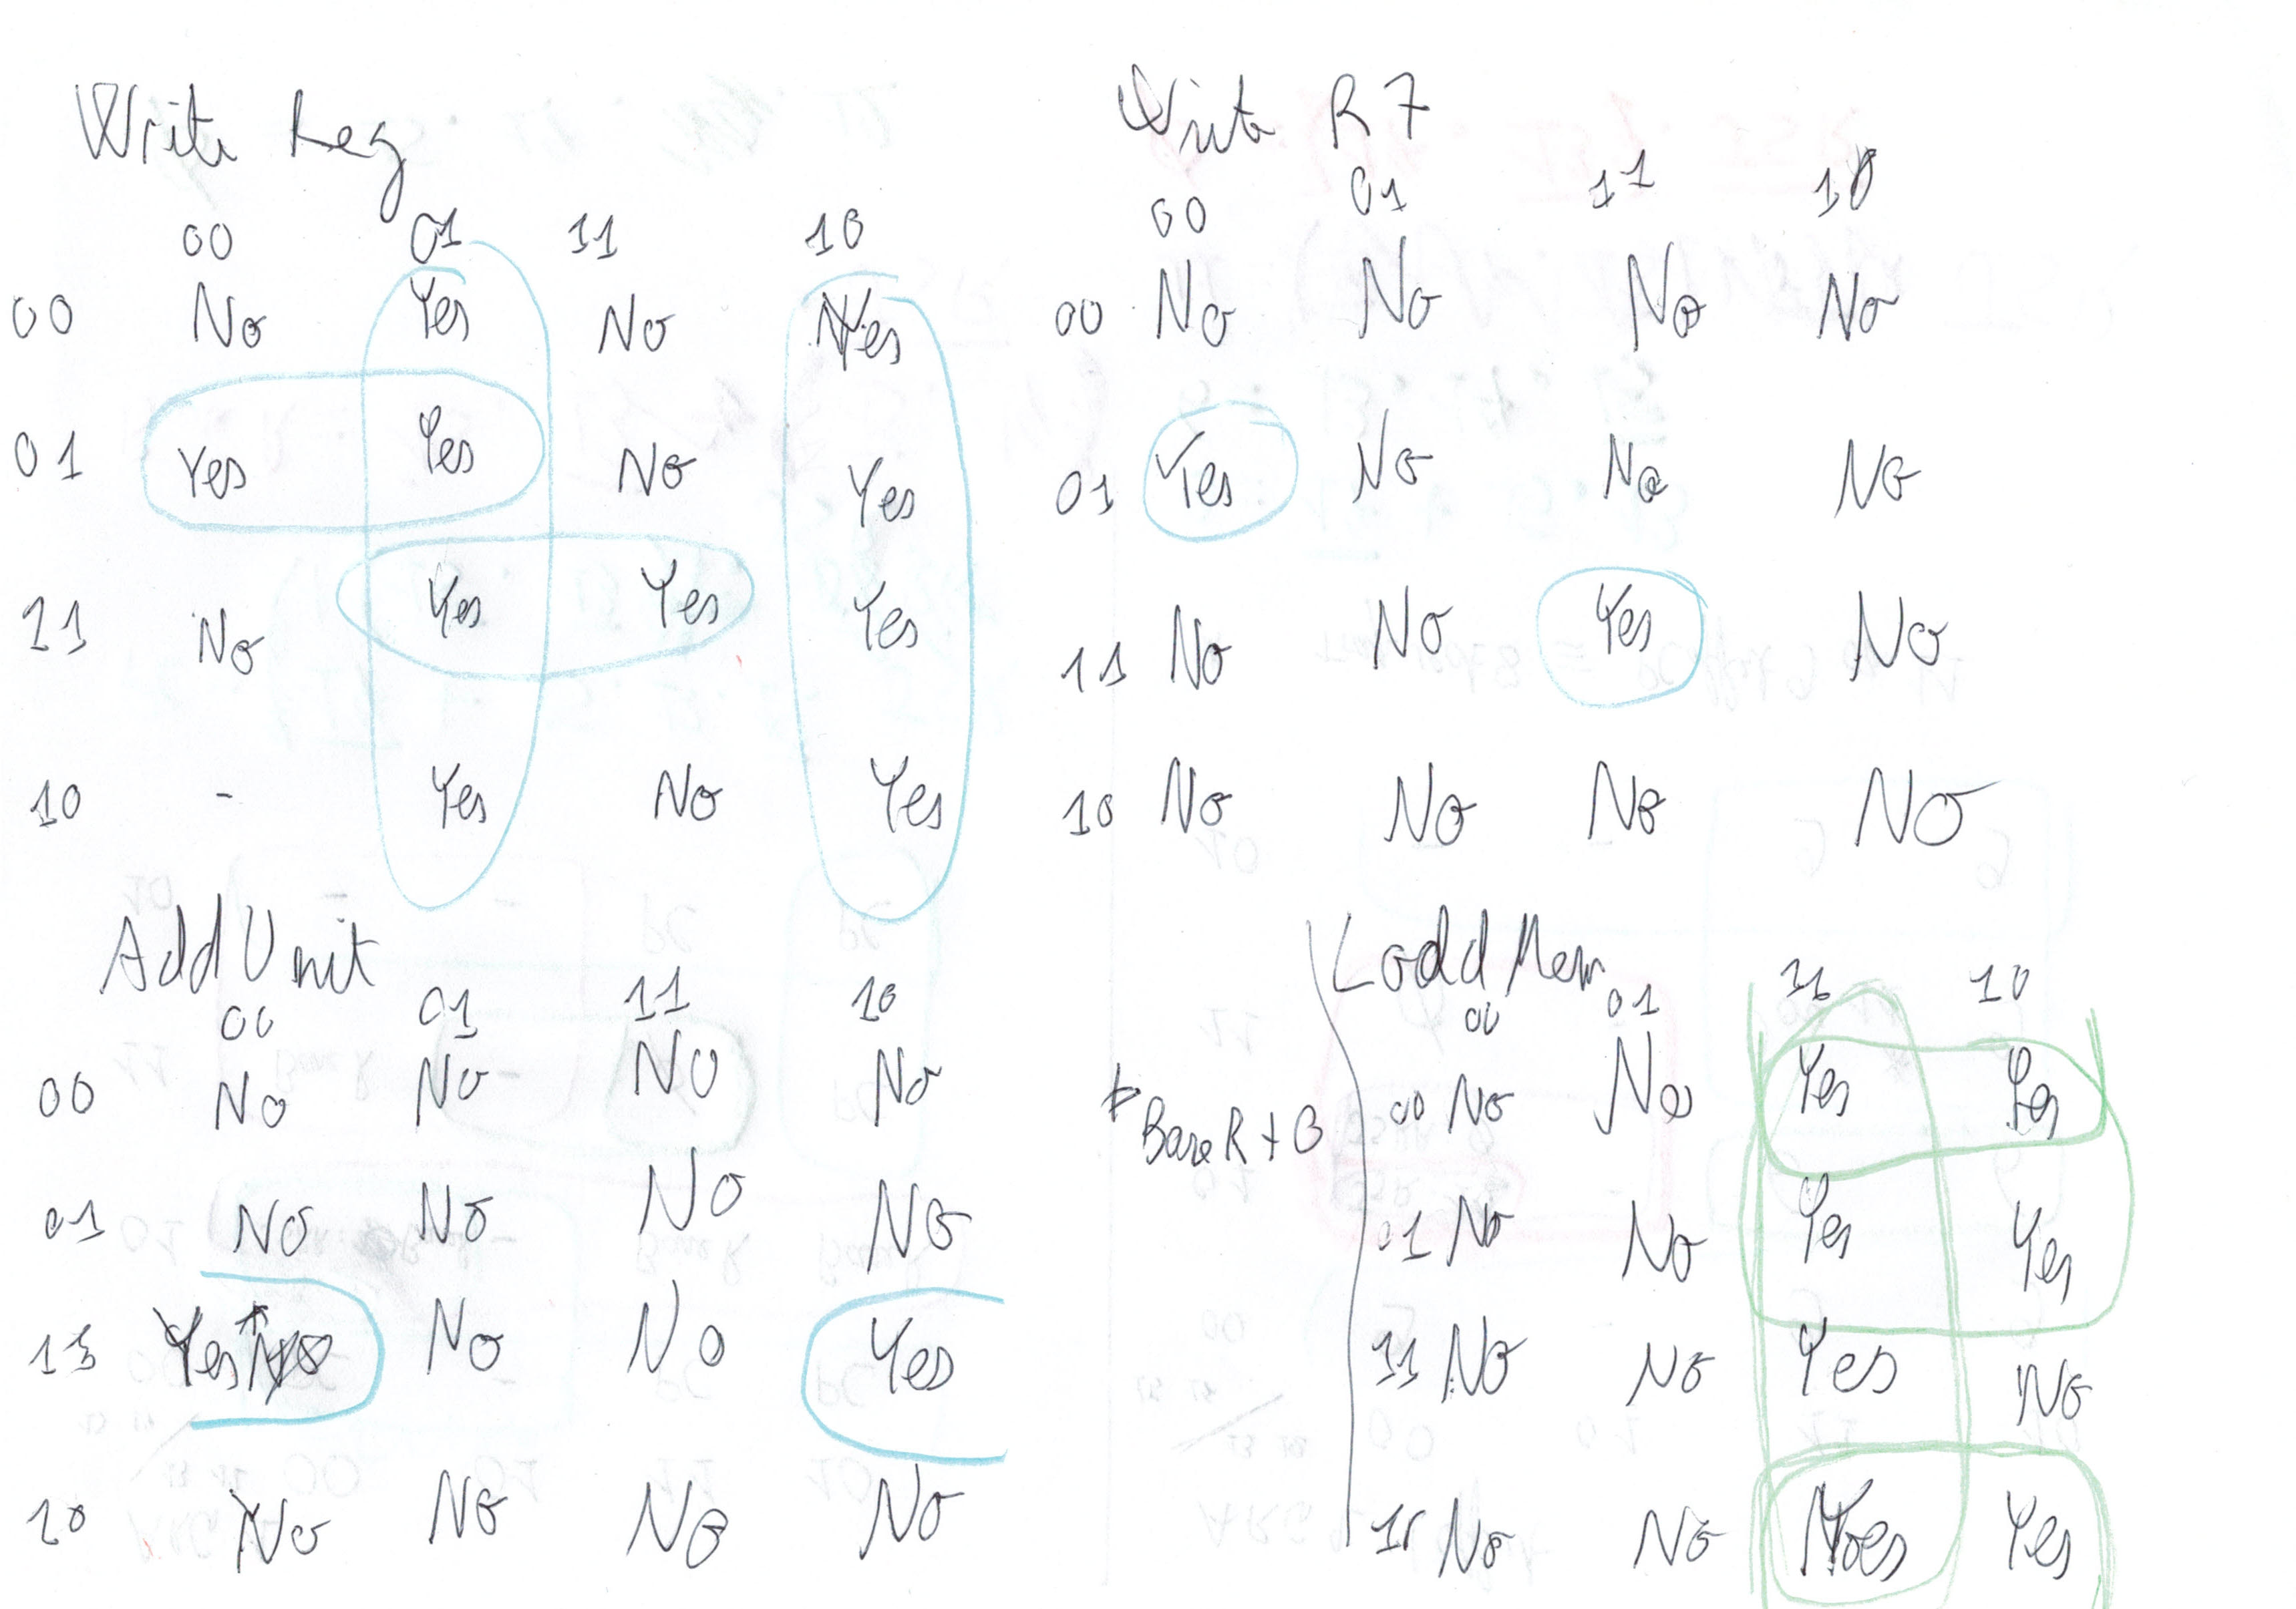 Write Reg
00 01 11 10
00 No Yes No Yes
01 Yes Yes No Yes
11 No Yes Yes Yes
10 - Yes No Yes
Write R7
00 01 11 10
00 No No No No
01 Yes No No No
11 No No Yes No
10 No No No No
Add Unit
00 01 11 10
00 No No No No
01 No No No No
11 Yes No No Yes
10 No No No No
Load Mem
00 01 11 10
00 No No Yes Yes
BaseR + 0
01 No No Yes Yes
11 No No Yes No
10 No No Yes Yes